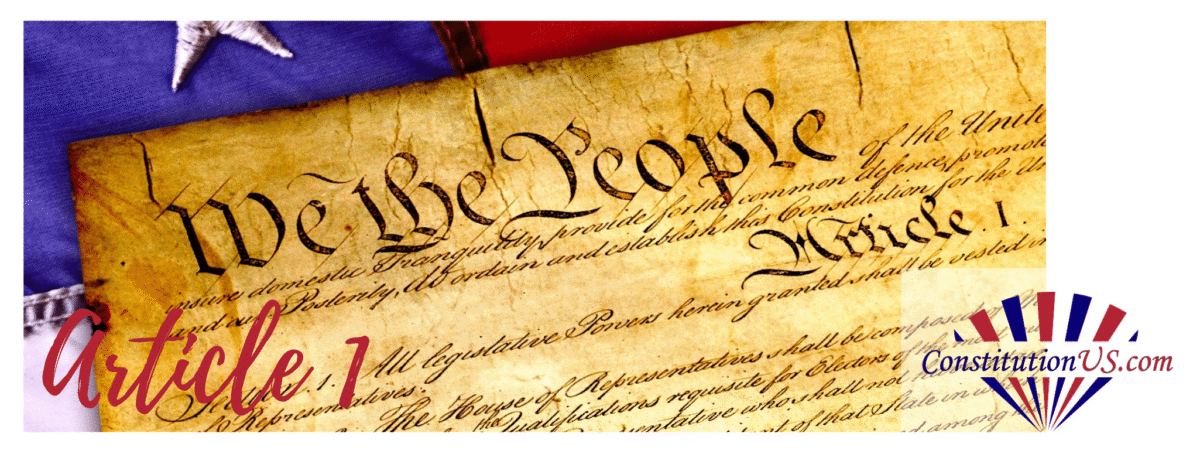 We the People of the Unite
insure domestic Tranquility, provide for the common defence, promote
and our Posterity, do ordain and establish this Constitution for the Un
Article 1.
1. All legislative Powers herein granted shall be vested in
Representatives.
The House of Representatives shall be composed of
the Qualifications requisite for Electors of the most
who shall not
of that State in
among
Article 1
ConstitutionUS.com